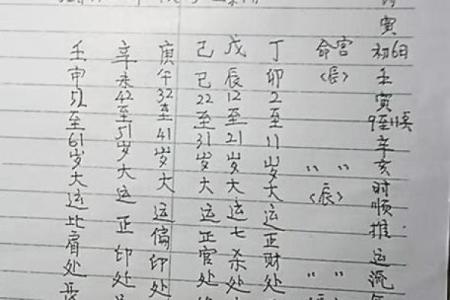 寅初6日壬寅9至11点辛亥时顺推运流
命宫〈辰〉〃〃〈辰〉〃〃
丁卯2至11岁大运正财处
戊辰12至21岁大运七杀处
己巳22至31岁大运正官处
庚午32至41岁大运偏印处
辛未42至51岁大运正印处
壬申52至61岁大运比肩处